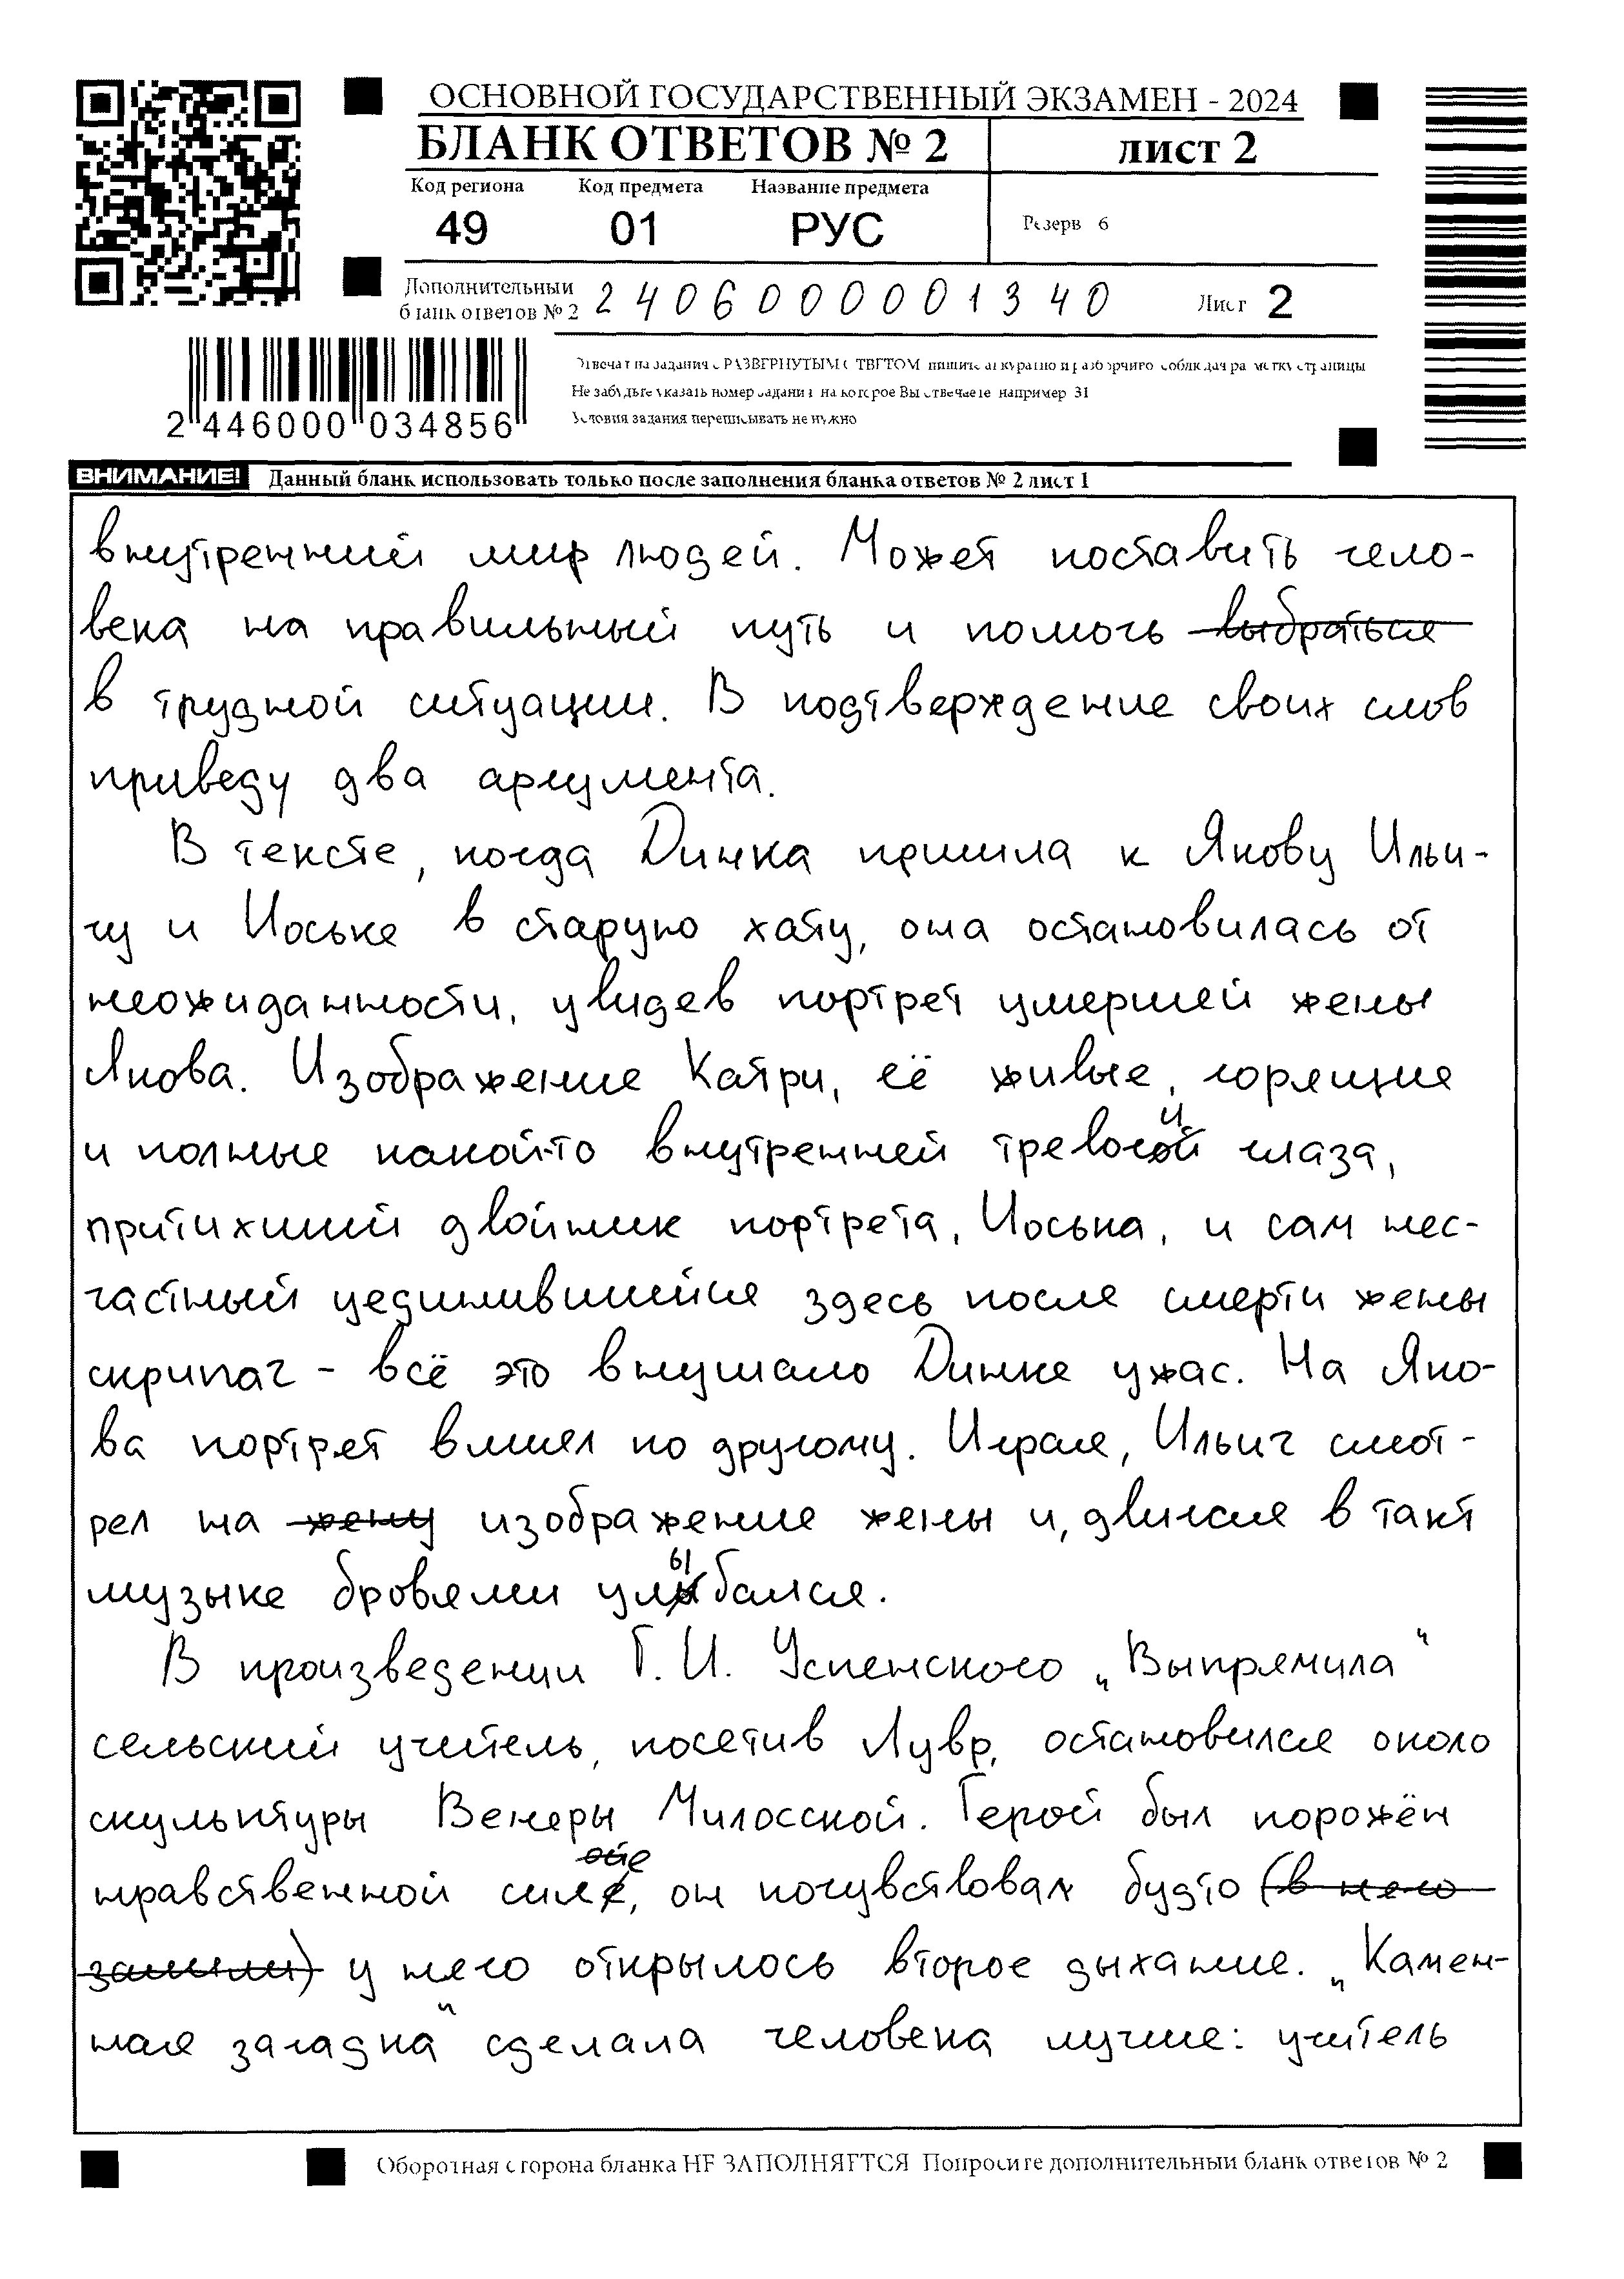 ОСНОВНОЙ ГОСУДАРСТВЕННЫЙ ЭКЗАМЕН - 2024
БЛАНК ОТВЕТОВ № 2
ЛИСТ 2
Код региона Код предмета Название предмета
49 01 РУС
Резерв 6
Дополнительный
бланк ответов № 2
2406000001340
Лист 2
Отвечая на задания с РАЗВЕРНУТЫМ ОТВЕТОМ пишите аккуратно и разборчиво соблюдая разметку страницы
Не забудьте указать номер задания на которое Вы отвечаете например 31
Условия задания переписывать не нужно
2 446000 034856
ВНИМАНИЕ! Данный бланк использовать только после заполнения бланка ответов № 2 лист 1
внутренний мир людей. Может поставить чело-
века на правильный путь и помочь выбраться
в трудной ситуации. В подтверждение своих слов
приведу два аргумента.
В тексте, когда Динка пришла к Якову Ильи-
чу и Иоське в старую хату, она остановилась от
неожиданности, увидев портрет умершей жены
Якова. Изображение Катри, её живые, горящие
и полные какой-то внутренней тревоги глаза,
притихший двойник портрета, Иоська, и сам нес-
частный уединившийся здесь после смерти жены
скрипач - всё это внушало Динке ужас. На Яко-
ва портрет влиял по другому. Играя, Ильич смот-
рел на жену изображение жены и, двигая в такт
музыке бровями улыбался.
В произведении Г. И. Успенского „Выпрямила“
сельский учитель, посетив Лувр, остановился около
скульптуры Венеры Милосской. Герой был порожён
нравственной силе, он почувствовал будто (в него
залили) у него открылось второе дыхание. „Камен-
ная загадка“ сделала человека лучше: учитель
Оборотная сторона бланка НЕ ЗАПОЛНЯЕТСЯ Попросите дополнительный бланк ответов № 2